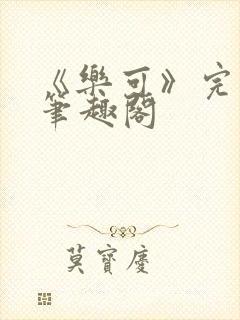 《樂可》完
筆趣閣
莫寶慶